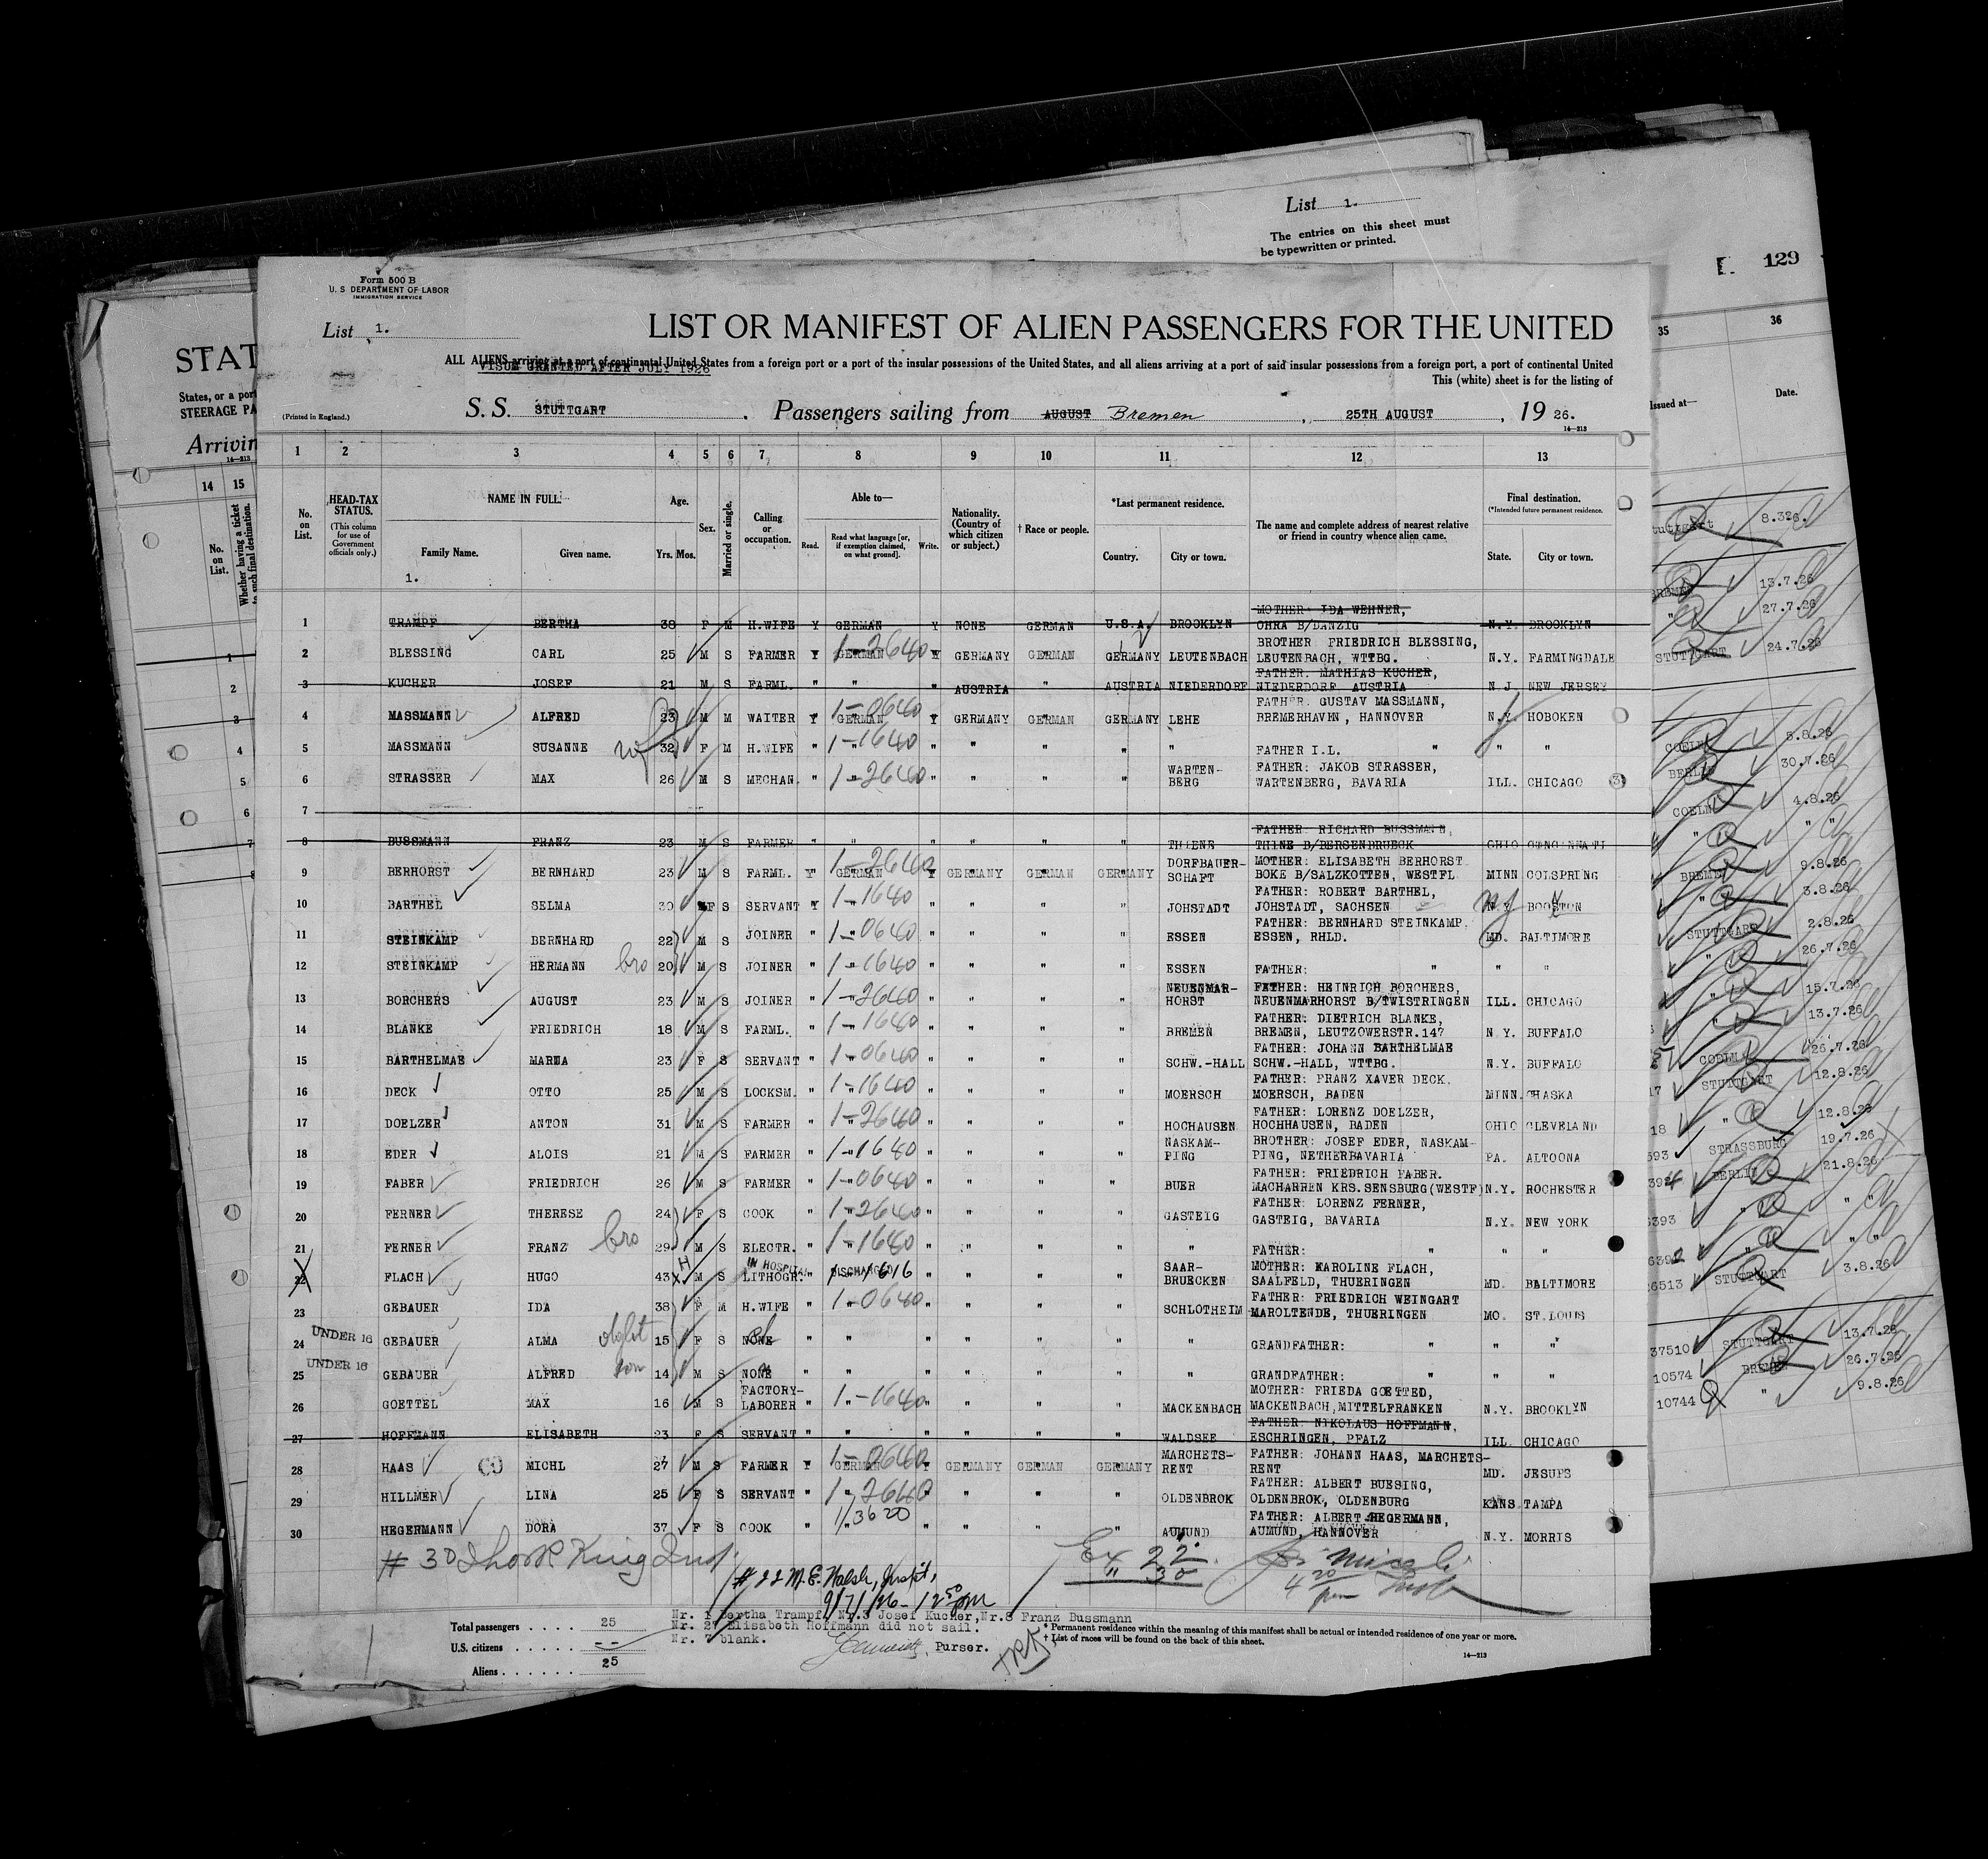 List 1.
The entries on this sheet must
be typewritten or printed.
129
Form 500 B
U. S DEPARTMENT OF LABOR
IMMIGRATION SERVICE
List 1.
LIST OR MANIFEST OF ALIEN PASSENGERS FOR THE UNITED
ALL ALIENS arriving at a port of continental United States from a foreign port or a port of the insular possessions of the United States, and all aliens arriving at a port of said insular possessions from a foreign port, a port of continental United
VISUM GRANTED AFTER JULY 1926
This (white) sheet is for the listing of
(Printed in England.)
S. S. STUTTGART. Passengers sailing from AUGUST Bremen, 25TH AUGUST, 19 26.
14—213
STAT
States, or a port
STEERAGE PA
Arrivin
14—213
35 36
Issued at— Date.
14 15
No. on List.
Whether having a ticket to such final destination.
1 2 3 4 5 6 7 8 9 10 11 12 13
No. on List.
HEAD-TAX STATUS.
(This column for use of Government officials only.)
NAME IN FULL.
Family Name. Given name.
1.
Age.
Yrs. Mos.
Sex.
Married or single.
Calling or occupation.
Able to—
Read. Read what language [or, if exemption claimed, on what ground]. Write.
Nationality. (Country of which citizen or subject.)
† Race or people.
*Last permanent residence.
Country. City or town.
The name and complete address of nearest relative or friend in country whence alien came.
Final destination.
(*Intended future permanent residence.
State. City or town.
MOTHER: IDA WEHNER,
1 TRAMPF BERTHA 38 F M H.WIFE Y GERMAN Y NONE GERMAN U.S.A. BROOKLYN OHRA B/DANZIG N.Y. BROOKLYN
1-2640
BROTHER FRIEDRICH BLESSING,
2 BLESSING CARL 25 M S FARMER Y GERMAN Y GERMANY GERMAN GERMANY LEUTENBACH LEUTENBACH, WTTBG. N.Y. FARMINGDALE
FATHER: MATHIAS KUCHER,
3 KUCHER JOSEF 21 M S FARML. " " " AUSTRIA " AUSTRIA NIEDERDORF NIEDERDORF AUSTRIA N.J. NEW JERSEY
1-0640
FATHER. GUSTAV MASSMANN,
4 MASSMANN ALFRED 23 M M WAITER Y GERMAN Y GERMANY GERMAN GERMANY LEHE BREMERHAVEN, HANNOVER N.Y. HOBOKEN
5 MASSMANN SUSANNE wf 32 F M H.WIFE " 1-1640 " " " " " FATHER I.L. " " "
6 STRASSER MAX 26 M S MECHAN. " 1-2640 " " " " WARTEN- FATHER: JAKOB STRASSER,
BERG WARTENBERG, BAVARIA ILL. CHICAGO
7
FATHER: RICHARD BUSSMANN,
8 BUSSMANN FRANZ 23 M S FARMER " " " " " " THIENE THINE B/BERSENBRUECK OHIO CINCINNATI
1-2640
DORFBAUER- MOTHER: ELISABETH BERHORST
9 BERHORST BERNHARD 23 M S FARML. Y GERMAN Y GERMANY GERMAN GERMANY SCHAFT BOKE B/SALZKOTTEN, WESTFL MINN COLSPRING
1-1640
FATHER: ROBERT BARTHEL,
10 BARTHEL SELMA 30 F S SERVANT Y " " " " " JOHSTADT JOHSTADT, SACHSEN N.Y. BOOSTON
FATHER: BERNHARD STEINKAMP.
11 STEINKAMP BERNHARD 22 M S JOINER " 1-0640 " " " " ESSEN ESSEN, RHLD. MD. BALTIMORE
12 STEINKAMP HERMANN bro 20 M S JOINER " 1-1640 " " " " ESSEN FATHER: " " "
NEUENMAR- FATHER: HEINRICH BORCHERS,
13 BORCHERS AUGUST 23 M S JOINER " 1-2640 " " " " HORST NEUENMARHORST B/TWISTRINGEN ILL. CHICAGO
FATHER: DIETRICH BLANKE,
14 BLANKE FRIEDRICH 18 M S FARML. " 1-1640 " " " " BREMEN BREMEN, LEUTZOWERSTR.147 N.Y. BUFFALO
FATHER: JOHANN BARTHELMAE
15 BARTHELMAE MARNA 23 F S SERVANT " 1-0640 " " " " SCHW.-HALL SCHW.-HALL, WTTBG. N.Y. BUFFALO
FATHER: FRANZ XAVER DECK.
16 DECK OTTO 25 M S LOCKSM. " 1-1640 " " " " MOERSCH MOERSCH, BADEN MINN. CHASKA
FATHER: LORENZ DOELZER,
17 DOELZER ANTON 31 M S FARMER " 1-2640 " " " " HOCHAUSEN HOCHHAUSEN, BADEN OHIO CLEVELAND
NASKAM- BROTHER: JOSEF EDER, NASKAM-
18 EDER ALOIS 21 M S FARMER " 1-1640 " " " " PING PING, NETHERBAVARIA PA. ALTOONA
FATHER: FRIEDRICH FABER.
19 FABER FRIEDRICH 26 M S FARMER " 1-0640 " " " " BUER MACHARREN KRS.SENSBURG(WESTF) N.Y. ROCHESTER
FATHER: LORENZ FERNER,
20 FERNER THERESE 24 F S COOK " 1-2640 " " " " GASTEIG GASTEIG, BAVARIA N.Y. NEW YORK
21 FERNER FRANZ bro 29 M S ELECTR. " 1-1640 " " " " " FATHER: " " "
H IN HOSPITAL DISCHARGED
SAAR- MOTHER: KAROLINE FLACH,
22 FLACH HUGO 43 M S LITHOGR. " 1616 " " " " BRUECKEN SAALFELD, THUERINGEN MD. BALTIMORE
FATHER: FRIEDRICH WEINGART
23 GEBAUER IDA 38 F M H.WIFE " 1-0640 " " " " SCHLOTHEIM MAROLTENDE, THUERINGEN MO. ST.LOUIS
UNDER 16
24 GEBAUER ALMA 15 F S NONE " " " " " " " GRANDFATHER: " " "
UNDER 16
25 GEBAUER ALFRED son 14 M S NONE " " " " " " " GRANDFATHER: " " "
FACTORY- MOTHER: FRIEDA GOETTED,
26 GOETTEL MAX 16 M S LABORER " 1-1640 " " " " MACKENBACH MACKENBACH, MITTELFRANKEN N.Y. BROOKLYN
FATHER: NIKOLAUS HOFFMANN,
27 HOFFMANN ELISABETH 23 F S SERVANT " " " " " " WALDSEE ESCHRINGEN, PFALZ ILL. CHICAGO
1-0640
MARCHETS- FATHER: JOHANN HAAS, MARCHETS-
28 HAAS MICHL 27 M S FARMER Y GERMAN Y GERMANY GERMAN GERMANY RENT RENT MD. JESUPS
FATHER: ALBERT BUESING,
29 HILLMER LINA 25 F S SERVANT " 1-2640 " " " " OLDENBROK OLDENBROK, OLDENBURG KANS. TAMPA
1/3620
FATHER: ALBERT HEGERMANN,
30 HEGERMANN DORA 37 F S COOK " " " " " " AUMUND AUMUND, HANNOVER N.Y. MORRIS
# 30
# 22 M.E. Walsh, Inspt,
9/7/26 - 12 50 pm
Ex 22
" 30
4 20 pm
Nr. 1 Bertha Trampf, Nr.3 Josef Kucher, Nr.8 Franz Bussmann
Nr. 27 Elisabeth Hoffmann did not sail.
Nr. 7 blank.
Purser.
Total passengers . . . . 25
U.S. citizens . . . . . --
Aliens . . . . . . 25
* Permanent residence within the meaning of this manifest shall be actual or intended residence of one year or more.
† List of races will be found on the back of this sheet.
14—213
1
2
3
4
5
6
7
8
tuttgart 8.326.
BREMEN 13.7.26
" 27.7.26
STUTTGART 24.7.26
COELN 5.8.26
BERLIN 30.7.26
COELN 4.8.26
" " "
BREMEN 9.8.26
" 3.8.26
STUTTGART 2.8.26
" 26.7.26
" 15.7.26
" 13.7.26
COELN 26.7.26
17 STUTTGART 12.8.26
18 " 12.8.26
593 STRASSBURG 19.7.26
BERLIN 21.8.26
6393 " " "
" " "
26513 STUTTGART 3.8.26
37510 STUTTGART 13.7.26
10574 BREMEN 26.7.26
10744 " 9.8.26